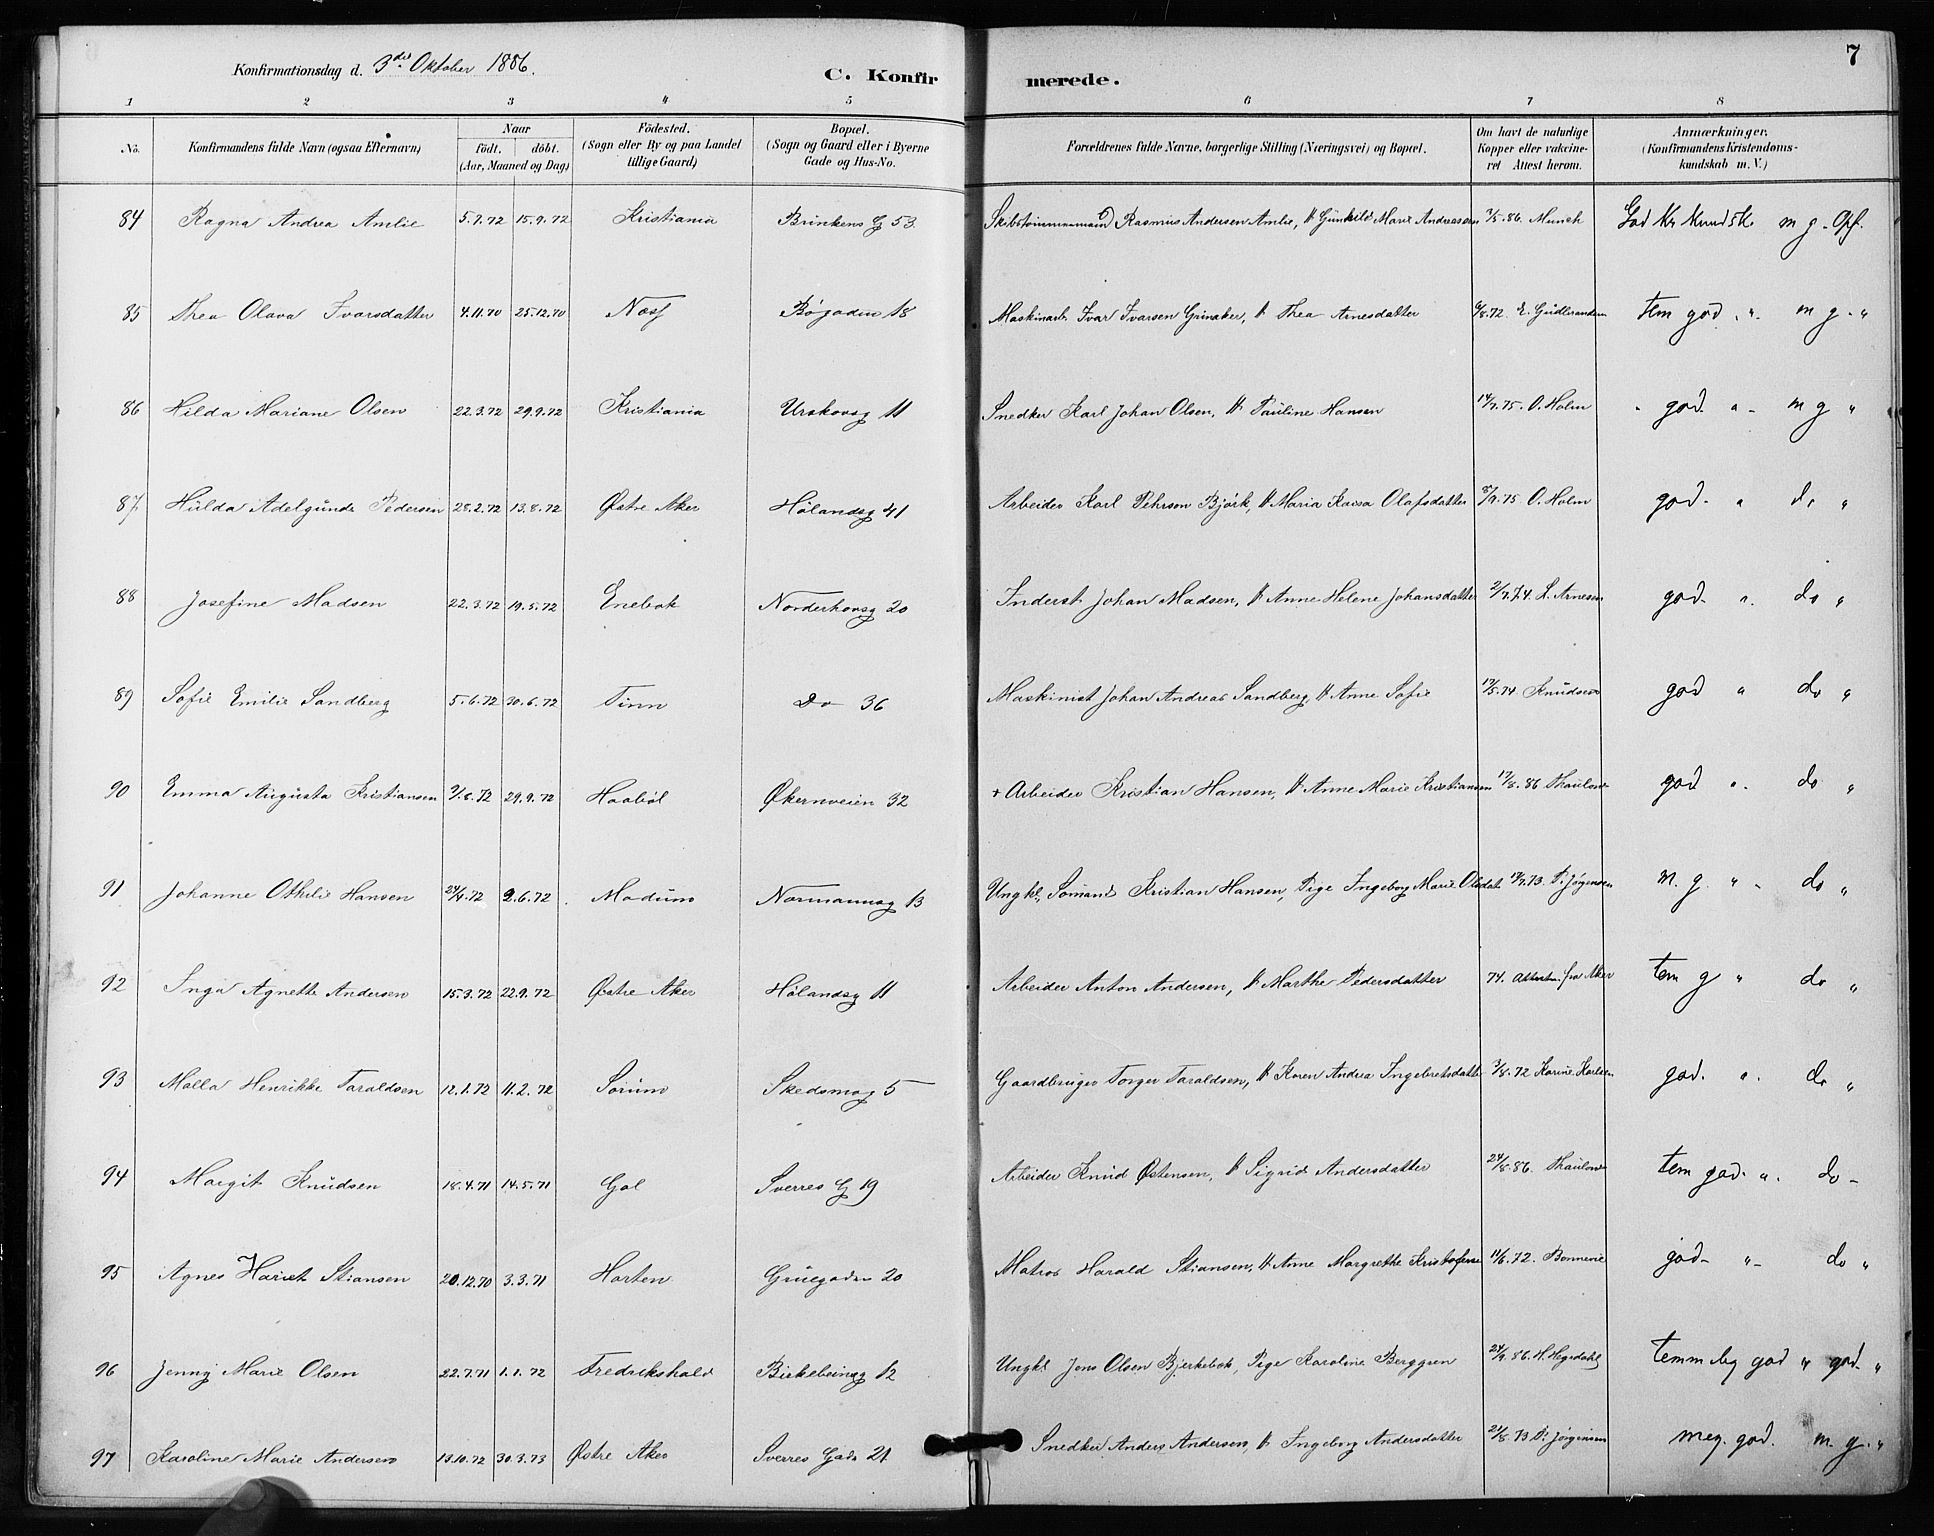 Konfirmationsdag d. 3die Oktober 1886.
C. Konfir merede. 7
1 2 3 4 5 6 7 8
No. Konfirmandens fulde Navn (ogsaa Efternavn) Naar födt. döbt. (Aar, Maaned og Dag) Födested. (Sogn eller By og paa Landet tillige Gaard) Bopæl. (Sogn og Gaard eller i Byerne Gade og Hus-No. Forældrenes fulde Navne, borgerlige Stilling (Næringsvei) og Bopæl. Om havt de naturlige Kopper eller vakcineret Attest herom. Anmærkninger. (Konfirmandens Kristendomskundskab m. V.)
84 Ragna Andrea Amlie 5.7.72 15.9.72 Kristiania Brinkens G 53 Skibstømmermand Rasmus Andersen Amlie, H Gunhild Marie Andreassen 7/5.86. Munch God Kr Kundsk. m g. Opf.
85 Thea Olava Ivarsdatter 4.11.70 25.12.70 Næs Bøgaden 18 Maskinarb. Ivar Ivarsen Grinaker, H Thea Arnesdatter 6/8.72 E. tem god " m g. "
86 Hilda Mariane Olsen 22.3.72 29.9.72 Kristiania Urskovsg 11 Snedker Karl Johan Olsen, H Pauline Hansen 14/7.75. O. Holm " god. " - m g "
87 Hulda Adelgunde Pedersen 28.2.72 13.8.72 Østre Aker Hølandsg 41 Arbeider Karl Pehrson Bjørk, H Maria Kaisa Olafsdatter 8/9.75 O. Holm god- " do "
88 Josefine Madsen 22.3.72 19.5.72 Enebak Norderhovsg 20 Inderst Johan Madsen, H Anne Helene Johansdatter 2/7.74. L. Arnesen god- " do "
89 Sofie Emilie Sandberg 5.6.72 30.6.72 Tinn Do 36 Maskinist Johan Andreas Sandberg, H Anne Sofie 17/5.74 Knudsen god " do "
90 Emma Augusta Kristiansen 9/6.72 29.9.72 Haabøl Økernveien 32 + Arbeider Kristian Hansen, H Anne Marie Kristiansen 17/8.86 Thaulow god " do "
91 Johanne Othilie Hansen 24/4.72 2.6.72 Modum Normannsg 13 Ungkl. Sømand Kristian Hansen, Pige Ingeborg Marie Olsdat. 19/7.73. P. Jørgensen m. g. " - do "
92 Inga Agnette Andersen 15.3.72 22.9.72 Østre Aker Hølandsg 11 Arbeider Anton Andersen, H Marthe Pedersdatter 74. Attestn. fra Aker tem g " do "
93 Malla Henrikke Taraldsen 12.1.72 11.2.72 Sørum Skedsmog 5 Gaardbruger Torger Taraldsen, H Karen Andrea Ingebretsdatter 3/8.72 Karine Karlsen god. " do "
94 Margit Knudsen 18.4.71 14.5.71 Gol Sverres G 19 Arbeider Knud Østensen, H Sigrid Andersdatter 24/8.86. Thaulow tem god. " do -
95 Agnes Hariet Stiansen 20.12.70 3.3.71 Horten Gruegaden 20 Matros Harald Stiansen, H Anne Margrethe Kristofersen 11/6.72. Bonnevie god- "- do "
96 Jenny Marie Olsen 22.7.71 1.1.72 Fredrikshald Birkebeinerg 12 Ungkl Jens Olsen Bjerkebæk, Pige Karoline Berggren 24/9.86. H. Hegdahl temmelig god " god. "
97 Karoline Marie Andersen 13.10.72 30.3.73 Østre Aker Sverres Gade 21 Snedker Anders Andersen, H Ingeborg Andersdatter 21/8.73 P. Jørgensen meg. god. m. g. "